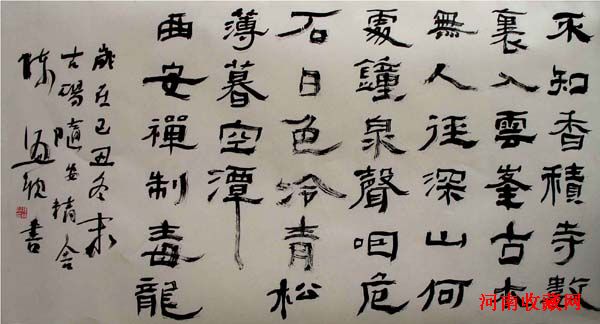 不知香積寺數
裏入雲峯古木
無人徑深山何
處鐘泉聲咽危
石日色冷青松
薄暮空潭
曲安禪制毒龍
歲在己丑冬末
古隨安精舍
陳書
河南收藏网